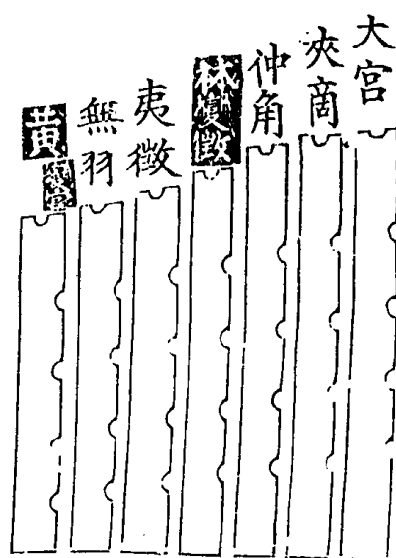 大宮
夾啇
仲角
林變徵
夷徵
無羽
黃變宮